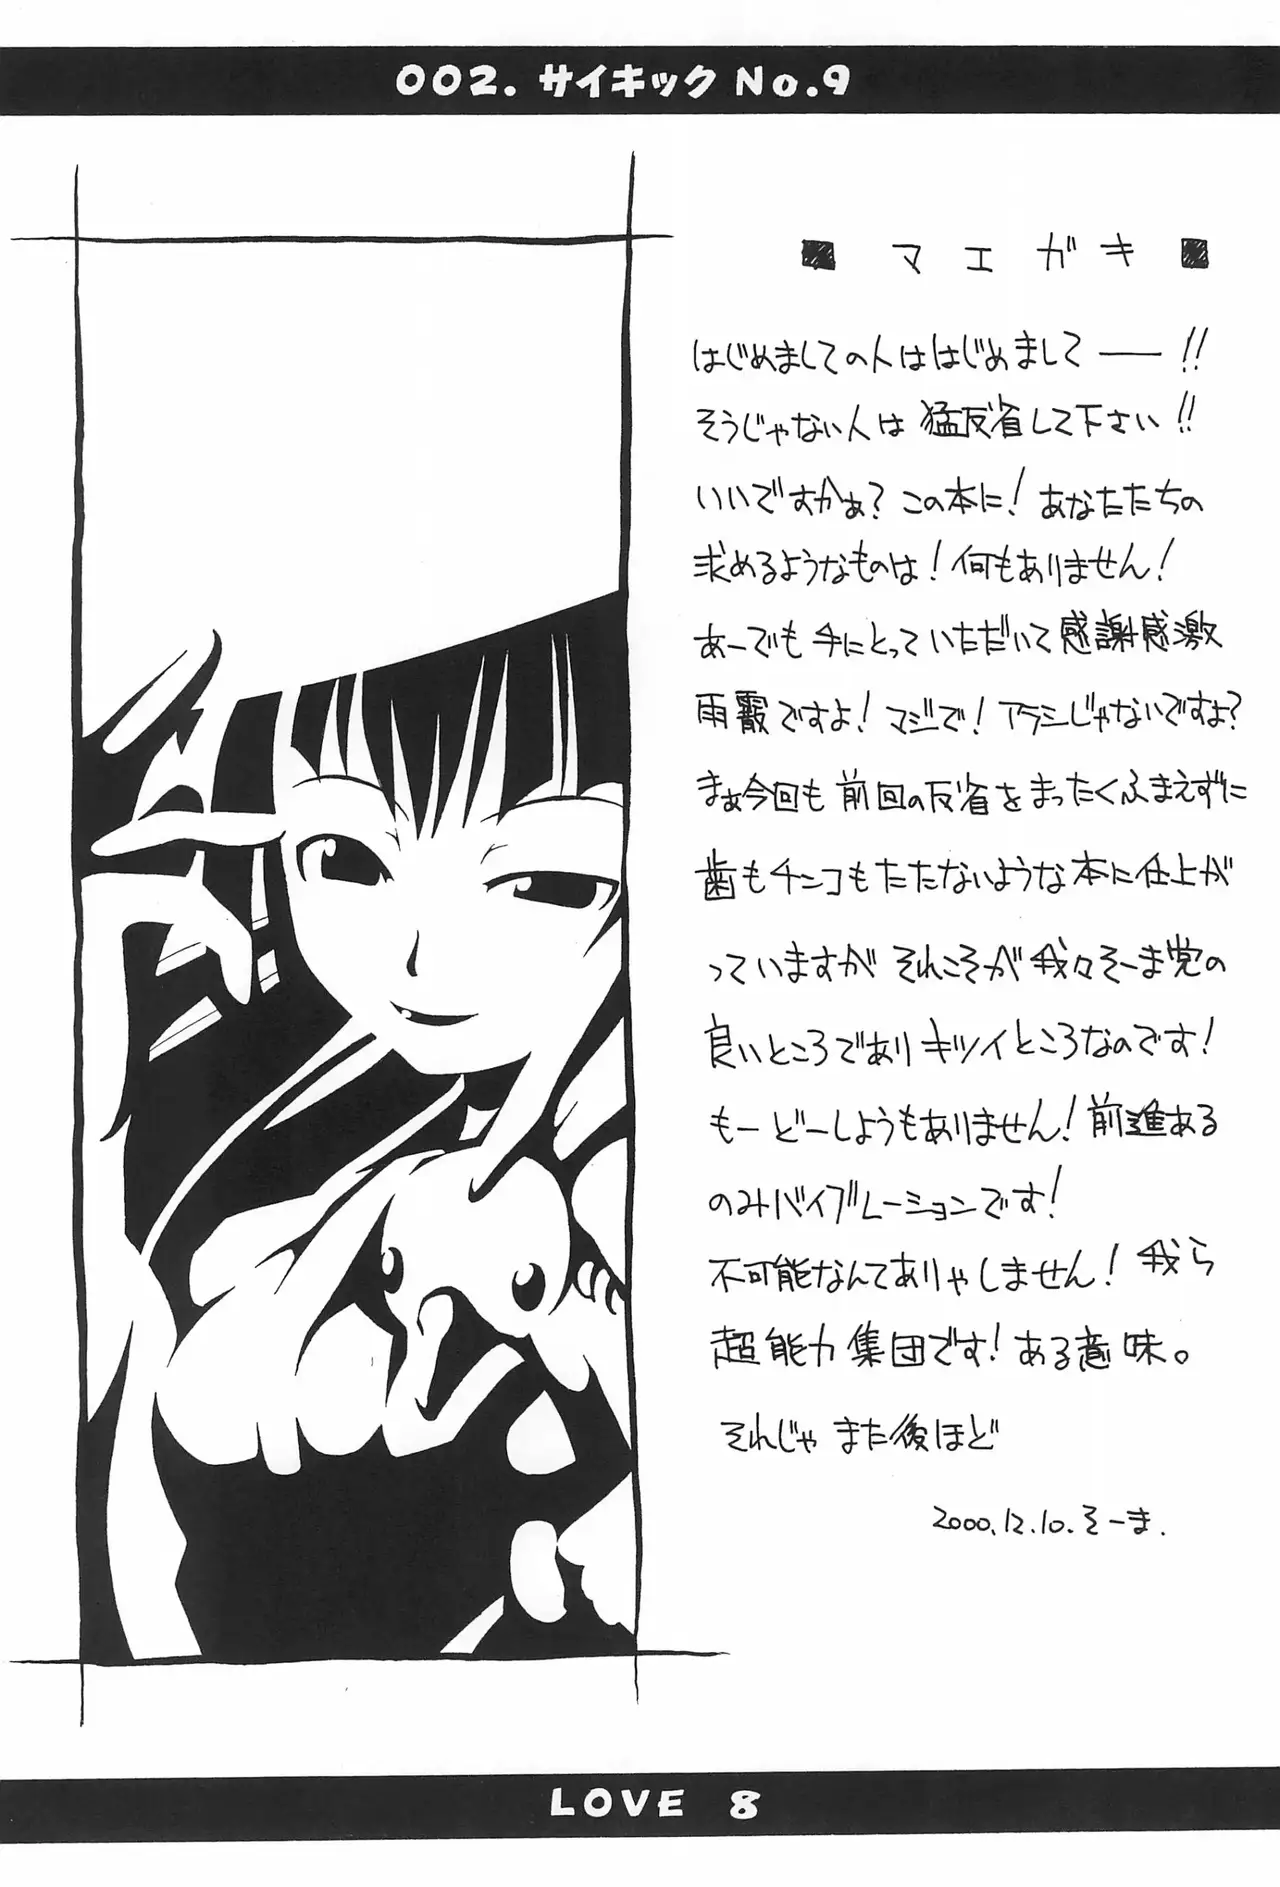 002. サイキック No.9
■ マエガキ ■
はじめましての人ははじめまして――!!
そうじゃない人は猛反省して下さい!!
いいですかぁ?この本に!あなたたちの
求めるようなものは!何もありません!
あーでも手にとっていただいて感謝感激
雨霰ですよ!マジで!アラシじゃないですよ?
まぁ今回も前回の反省をまったくふまえずに
歯もチンコもたたないような本に仕上が
っていますが それこそが我々そーま党の
良いところでありキツイところなのです!
もーどーしようもありません!前進ある
のみバイブレーションです!
不可能なんてありゃしません!我ら
超能力集団です!ある意味。
それじゃ また後ほど
2000.12.10.そーま.
LOVE 8